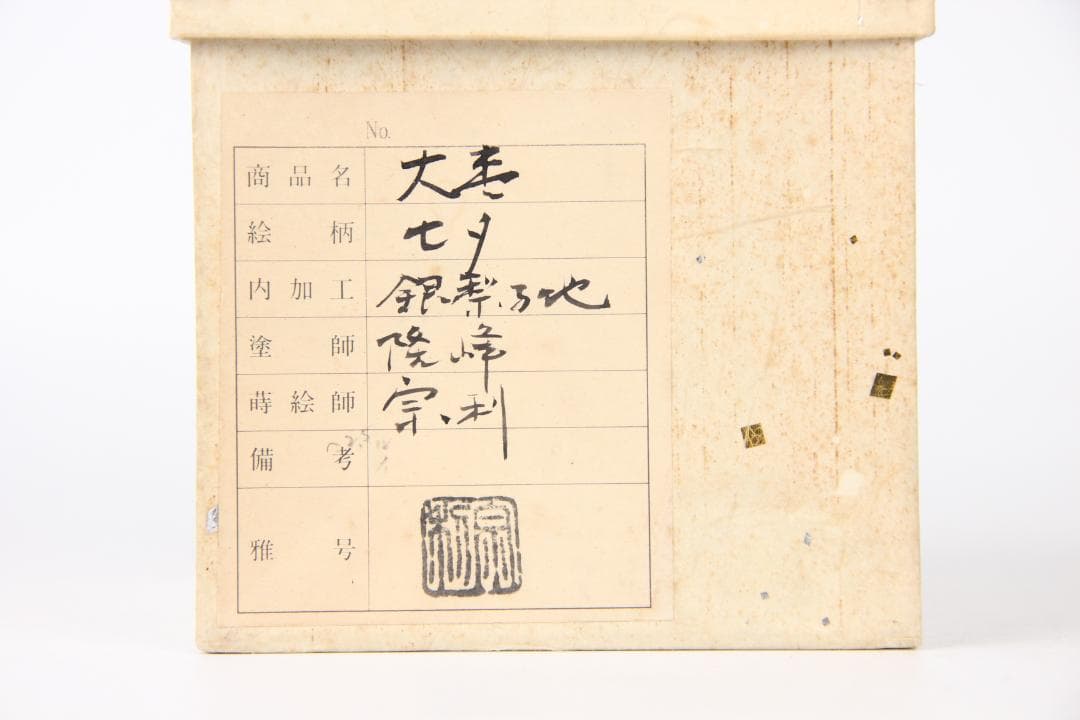 No.
商品名 大棗
絵柄 七夕
内加工 銀梨子地
塗師 隆峰
蒔絵師 宗利
備考
雅号 宗利